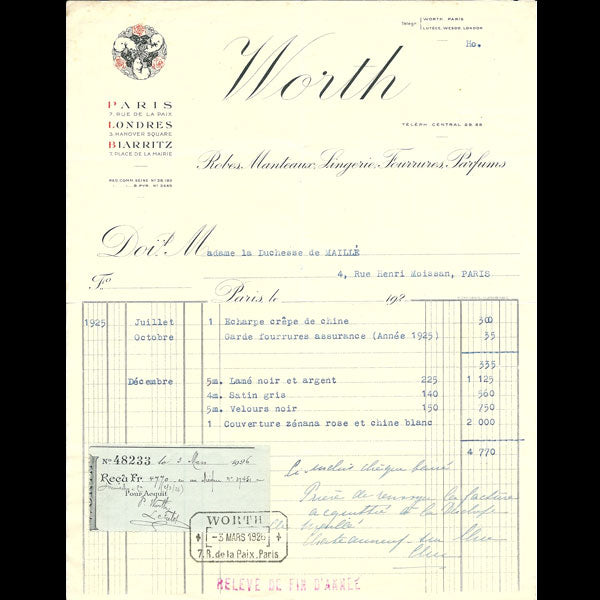 Télégr. WORTH PARIS
LUTÈCE, WESDO, LONDON
Ho.
Worth
PARIS
7. RUE DE LA PAIX
LONDRES
3. HANOVER SQUARE
BIARRITZ
7. PLACE DE LA MAIRIE
TÉLÉPH. CENTRAL
REG. COMM. SEINE
Robes, Manteaux, Lingerie, Fourrures, Parfums
Doit Madame la Duchesse de MAILLÉ
4, Rue Henri Moissan, PARIS
Fo
Paris le 192
1925 Juillet 1 Echarpe crêpe de chine 300
Octobre Garde fourrures assurance (Année 1925) 35
335
Décembre 5m. Lamé noir et argent 225 1 125
4m. Satin gris 140 560
5m. Velours noir 150 750
1 Couverture zénana rose et chine blanc 2 000
4 770
No 48233 le 3 Mars 1926
Reçu Fr. 4770 en un chèque
Pour Acquit
P. Worth
Ci inclus chèque barré
Prière de renvoyer la facture
acquittée à la Duchesse
de Maillé
Chateauneuf sur Cher
Cher
WORTH
-3 MARS 1926
7. R. de la Paix, Paris
RELEVÉ DE FIN D'ANNÉE